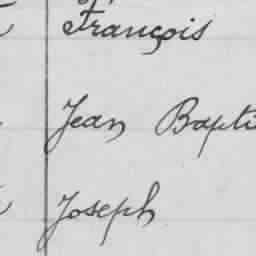 François
Jean Bapti
Joseph